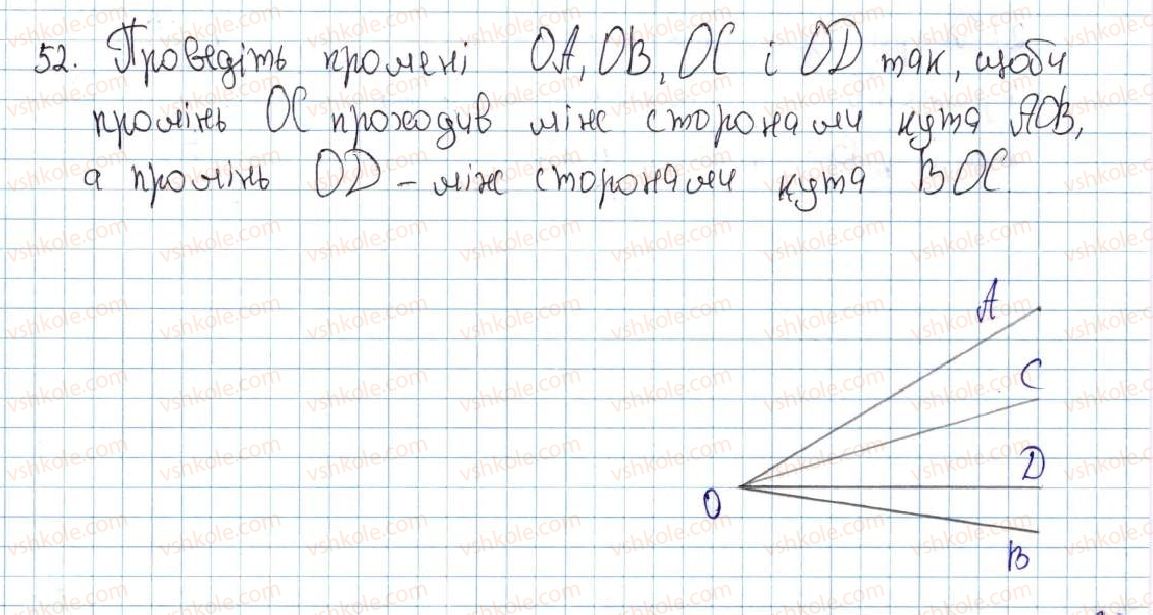 52. Проведіть промені OA, OB, OC і OD так, щоби
промінь OC проходив між сторонами кута AOB,
а промінь OD - між сторонами кута BOC.
A
C
D
O
B
vshkole.com